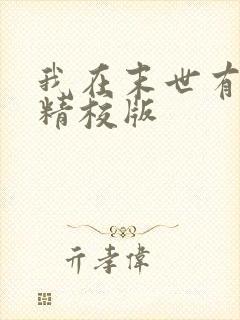 我在末世有
精校版
亓孝偉